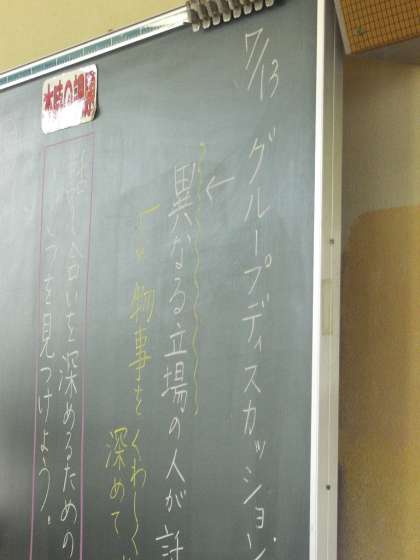 7/13 グループディスカッション
異なる立場の人が話
物事をくわしく
深めて
本時の課題
話し合いを深めるための
こつを見つけよう。